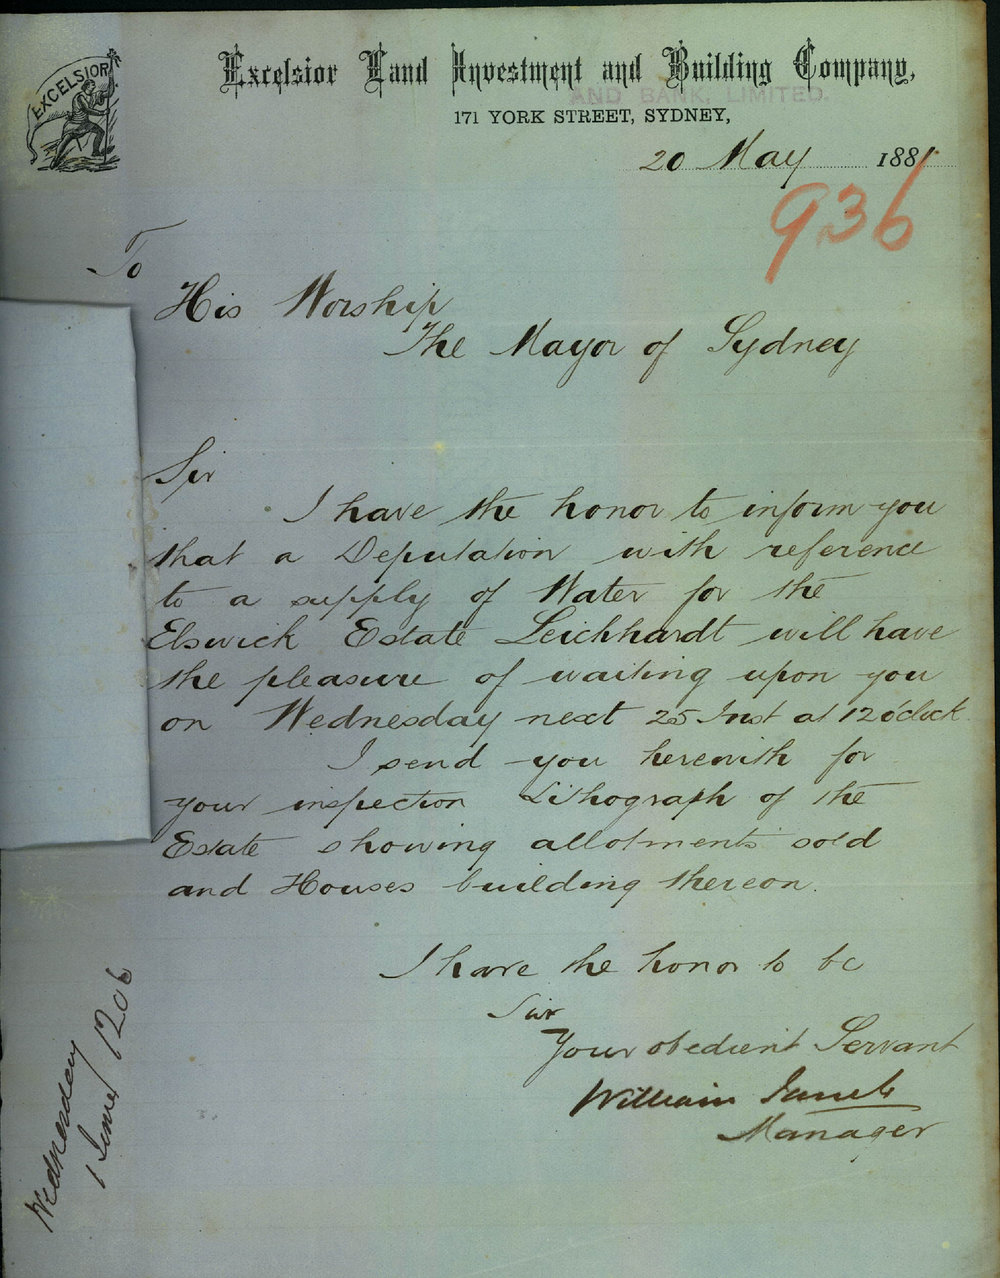 EXCELSIOR
Excelsior Land Investment and Building Company,
AND BANK, LIMITED.
171 YORK STREET, SYDNEY,
20 May 1881
936
To
His Worship
The Mayor of Sydney
Sir
I have the honor to inform you
that a Deputation with reference
to a supply of Water for the
Elswick Estate Leichhardt will have
the pleasure of waiting upon you
on Wednesday next 25 Inst at 12 o'clock.
I send you herewith for
your inspection Lithograph of the
Estate showing allotments sold
and Houses building thereon.
I have the honor to be
Sir
Your obedient Servant
William
Manager
Wednesday
1 June / 12 o'c